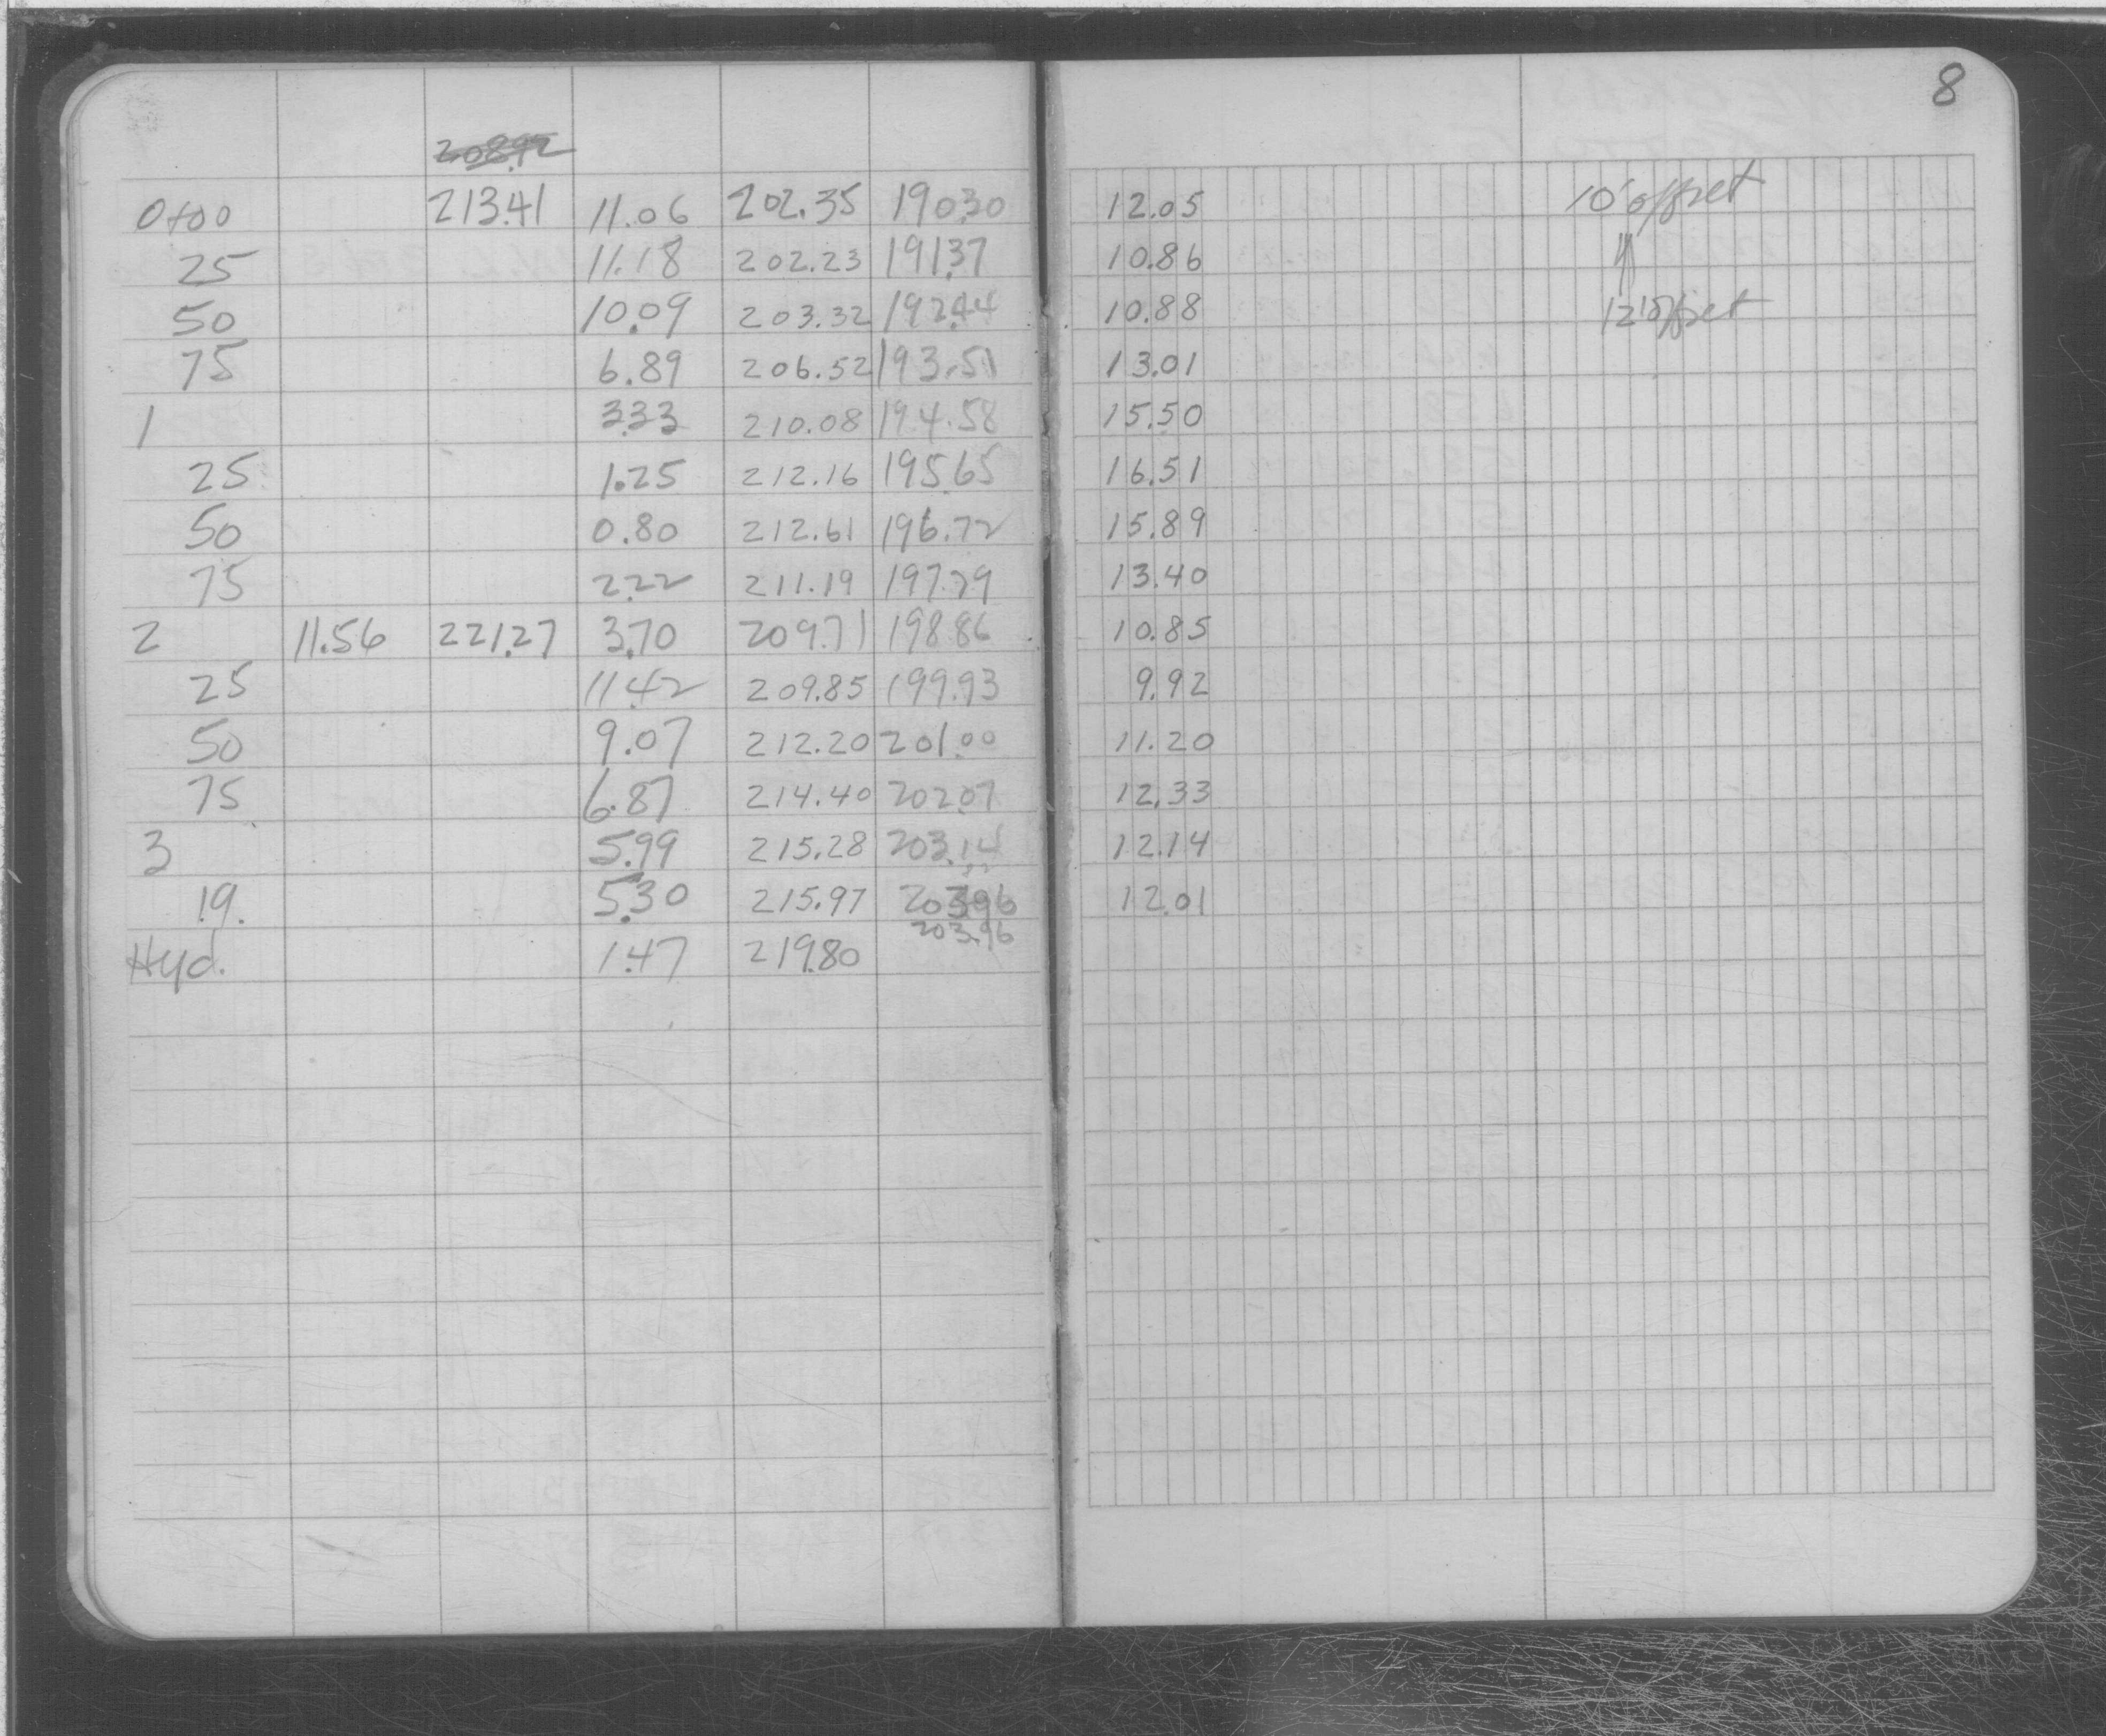 8
208.92
0+00 213.41 11.06 202.35 190.30 12.05 10' offset
25 11.18 202.23 191.37 10.86 "
50 10.09 203.32 192.44 10.88 12' offset
75 6.89 206.52 193.51 13.01
1 3.33 210.08 194.58 15.50
25 1.25 212.16 195.65 16.51
50 0.80 212.61 196.72 15.89
75 2.22 211.19 197.79 13.40
2 11.56 221.27 3.70 209.71 198.86 10.85
25 11.42 209.85 199.93 9.92
50 9.07 212.20 201.00 11.20
75 6.87 214.40 202.07 12.33
3 5.99 215.28 203.14 12.14
19. 5.30 215.97 203.96 12.01
203.96
Hyd. 1.47 219.80